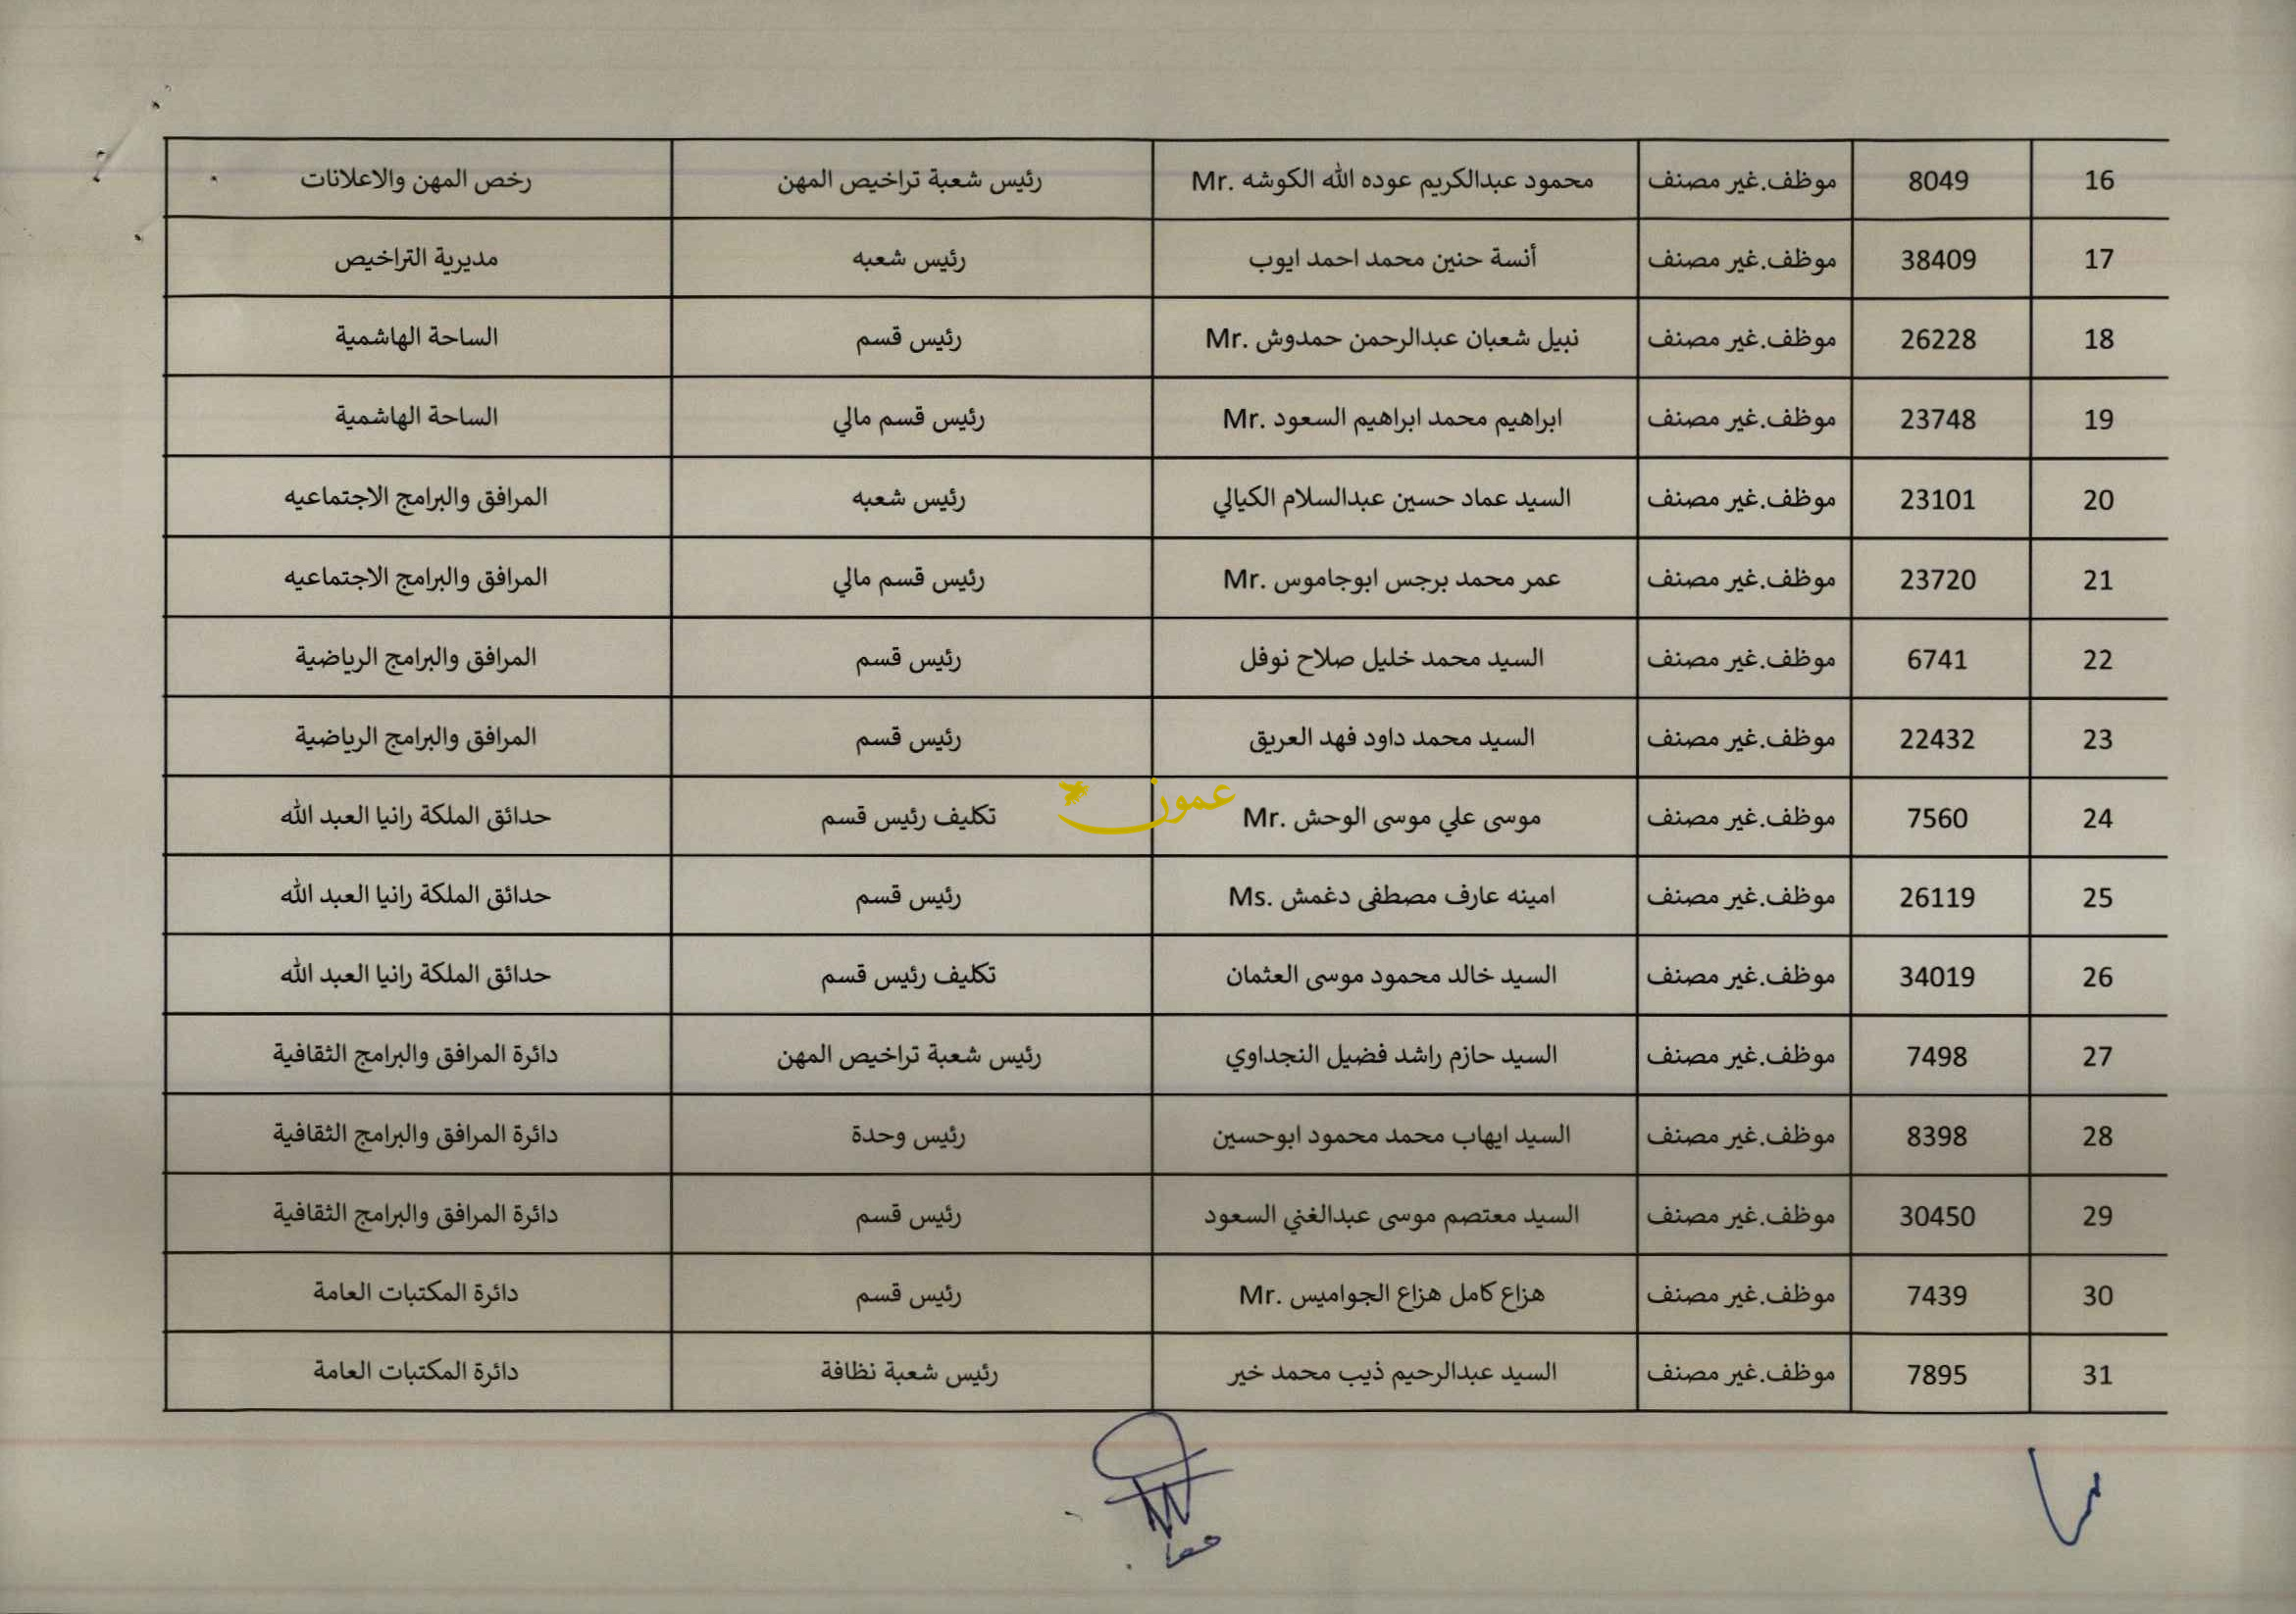 16 8049 موظف.غير مصنف محمود عبدالكريم عوده الله الكوشه .Mr رئيس شعبة تراخيص المهن رخص المهن والاعلانات
17 38409 موظف.غير مصنف أنسة حنين محمد احمد ايوب رئيس شعبه مديرية التراخيص
18 26228 موظف.غير مصنف نبيل شعبان عبدالرحمن حمدوش .Mr رئيس قسم الساحة الهاشمية
19 23748 موظف.غير مصنف ابراهيم محمد ابراهيم السعود .Mr رئيس قسم مالي الساحة الهاشمية
20 23101 موظف.غير مصنف السيد عماد حسين عبدالسلام الكيالي رئيس شعبه المرافق والبرامج الاجتماعيه
21 23720 موظف.غير مصنف عمر محمد برجس ابوجاموس .Mr رئيس قسم مالي المرافق والبرامج الاجتماعيه
22 6741 موظف.غير مصنف السيد محمد خليل صلاح نوفل رئيس قسم المرافق والبرامج الرياضية
23 22432 موظف.غير مصنف السيد محمد داود فهد العريق رئيس قسم المرافق والبرامج الرياضية
عمون
24 7560 موظف.غير مصنف موسى علي موسى الوحش .Mr تكليف رئيس قسم حدائق الملكة رانيا العبد الله
25 26119 موظف.غير مصنف امينه عارف مصطفى دغمش .Ms رئيس قسم حدائق الملكة رانيا العبد الله
26 34019 موظف.غير مصنف السيد خالد محمود موسى العثمان تكليف رئيس قسم حدائق الملكة رانيا العبد الله
27 7498 موظف.غير مصنف السيد حازم راشد فضيل النجداوي رئيس شعبة تراخيص المهن دائرة المرافق والبرامج الثقافية
28 8398 موظف.غير مصنف السيد ايهاب محمد محمود ابوحسين رئيس وحدة دائرة المرافق والبرامج الثقافية
29 30450 موظف.غير مصنف السيد معتصم موسى عبدالغني السعود رئيس قسم دائرة المرافق والبرامج الثقافية
30 7439 موظف.غير مصنف هزاع كامل هزاع الجواميس .Mr رئيس قسم دائرة المكتبات العامة
31 7895 موظف.غير مصنف السيد عبدالرحيم ذيب محمد خير رئيس شعبة نظافة دائرة المكتبات العامة